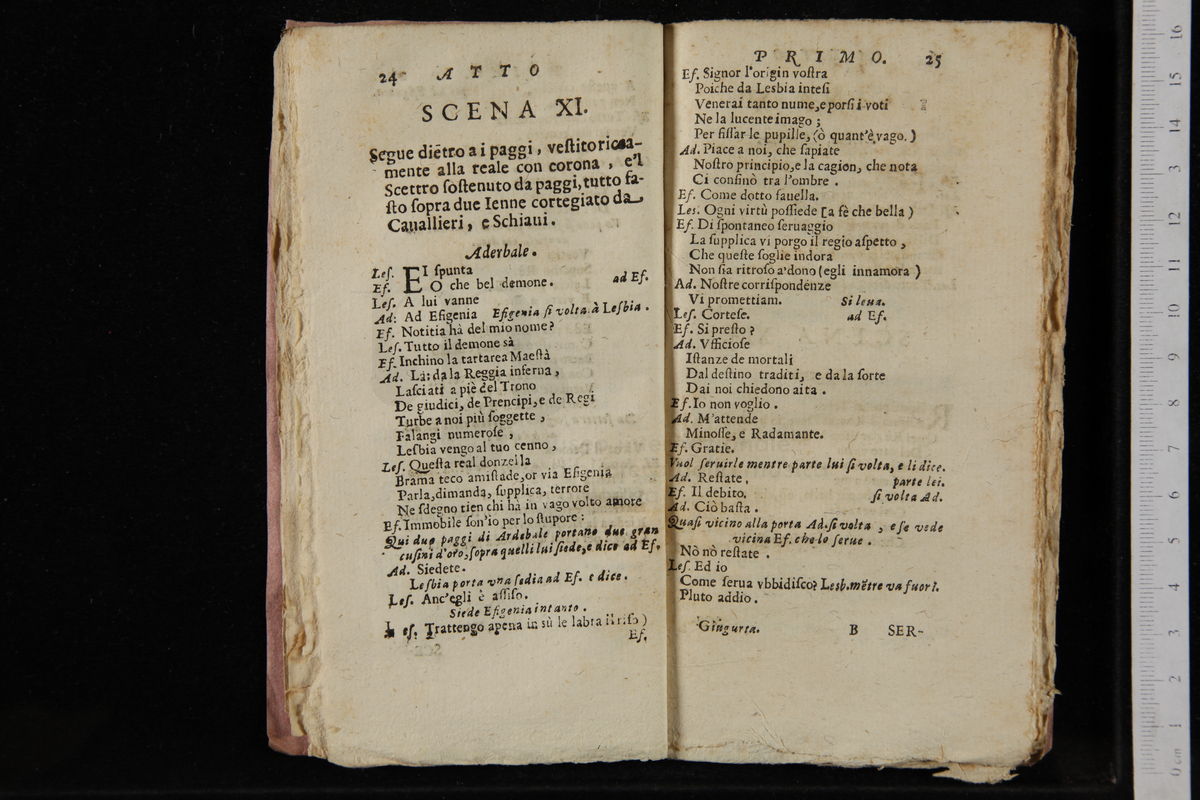 24 ATTO
SCENA XI.
Segue diētro a i paggi, veſtito ricca-
mente alla reale con corona, e'l
Scettro ſoſtenuto da paggi, tutto fa-
ſto ſopra due Ienne cortegiato da
Cauallieri, e Schiaui.
Aderbale.
Leſ. EI ſpunta
Ef. EO che bel demone. ad Ef.
Leſ. A lui vanne
Ad: Ad Efigenia Efigenia ſi volta à Lesbia.
Ef. Notitia hà del mio nome?
Leſ. Tutto il demone sà
Ef. Inchino la tartarea Maeſtà
Ad. Là: da la Reggia inferna,
Laſciati a piè del Trono
De giudici, de Prencipi, e de Regi
Turbe a noi più ſoggette,
Falangi numeroſe,
Lesbia vengo al tuo cenno,
Leſ. Queſta real donzella
Brama teco amiſtade, or via Efigenia
Parla, dimanda, ſupplica, terrore
Ne ſdegno tien chi hà in vago volto amore
Ef. Immobile ſon'io per lo ſtupore:
Qui due paggi di Ardebale portano due gran
cuſini d'oro, ſopra quelli lui ſiede, e dice ad Ef.
Ad. Siedete.
Lesbia porta vna ſedia ad Ef. e dice.
Leſ. Anc'egli è aſſiſo.
Siede Efigenia intanto.
Leſ. Trattengo apena in sù le labra il riſo)
Ef.
PRIMO. 25
Ef. Signor l'origin voſtra
Poiche da Lesbia inteſi
Venerai tanto nume, e porſi i voti
Ne la lucente imago;
Per fiſſar le pupille, (ò quant'è vago.)
Ad. Piace a noi, che ſapiate
Noſtro principio, e la cagion, che nota
Ci confinò tra l'ombre.
Ef. Come dotto fauella.
Leſ. Ogni virtù poſſiede [a fè che bella)
Ef. Di ſpontaneo ſeruaggio
La ſupplica vi porgo il regio aſpetto,
Che queſte ſoglie indora
Non ſia ritroſo a'dono (egli innamora)
Ad. Noſtre corriſpondenze
Vi promettiam. Si leua.
Leſ. Corteſe. ad Ef.
Ef. Si preſto?
Ad. Vfficioſe
Iſtanze de mortali
Dal deſtino traditi, e da la ſorte
Dai noi chiedono aita.
Ef. Io non voglio.
Ad. M'attende
Minoſſe, e Radamante.
Ef. Gratie.
Vuol ſeruirle mentre parte lui ſi volta, e li dice.
Ad. Reſtate, parte lei.
Ef. Il debito. ſi volta Ad.
Ad. Ciò baſta.
Quaſi vicino alla porta Ad. ſi volta, e ſe vede
vicina Ef. che lo ſerue.
Nò nò reſtate.
Leſ. Ed io
Come ſerua vbbidiſco? Lesb. mētre va fuori.
Pluto addio.
Giugurta. B SER-